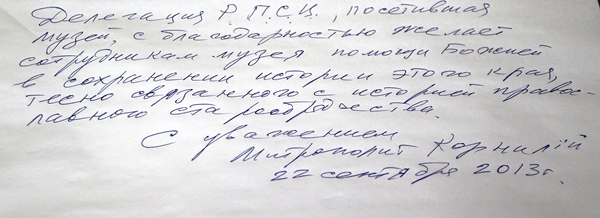 Делегация Р.П.С.Ц., посетившая
музей, с благодарностью желает
сотрудникам музея помощи Божией
в сохранении истории этого края,
тесно связанного с историей правос-
лавного старообрядчества.
С уважением
Митрополит Корнилий
22 сентября 2013г.